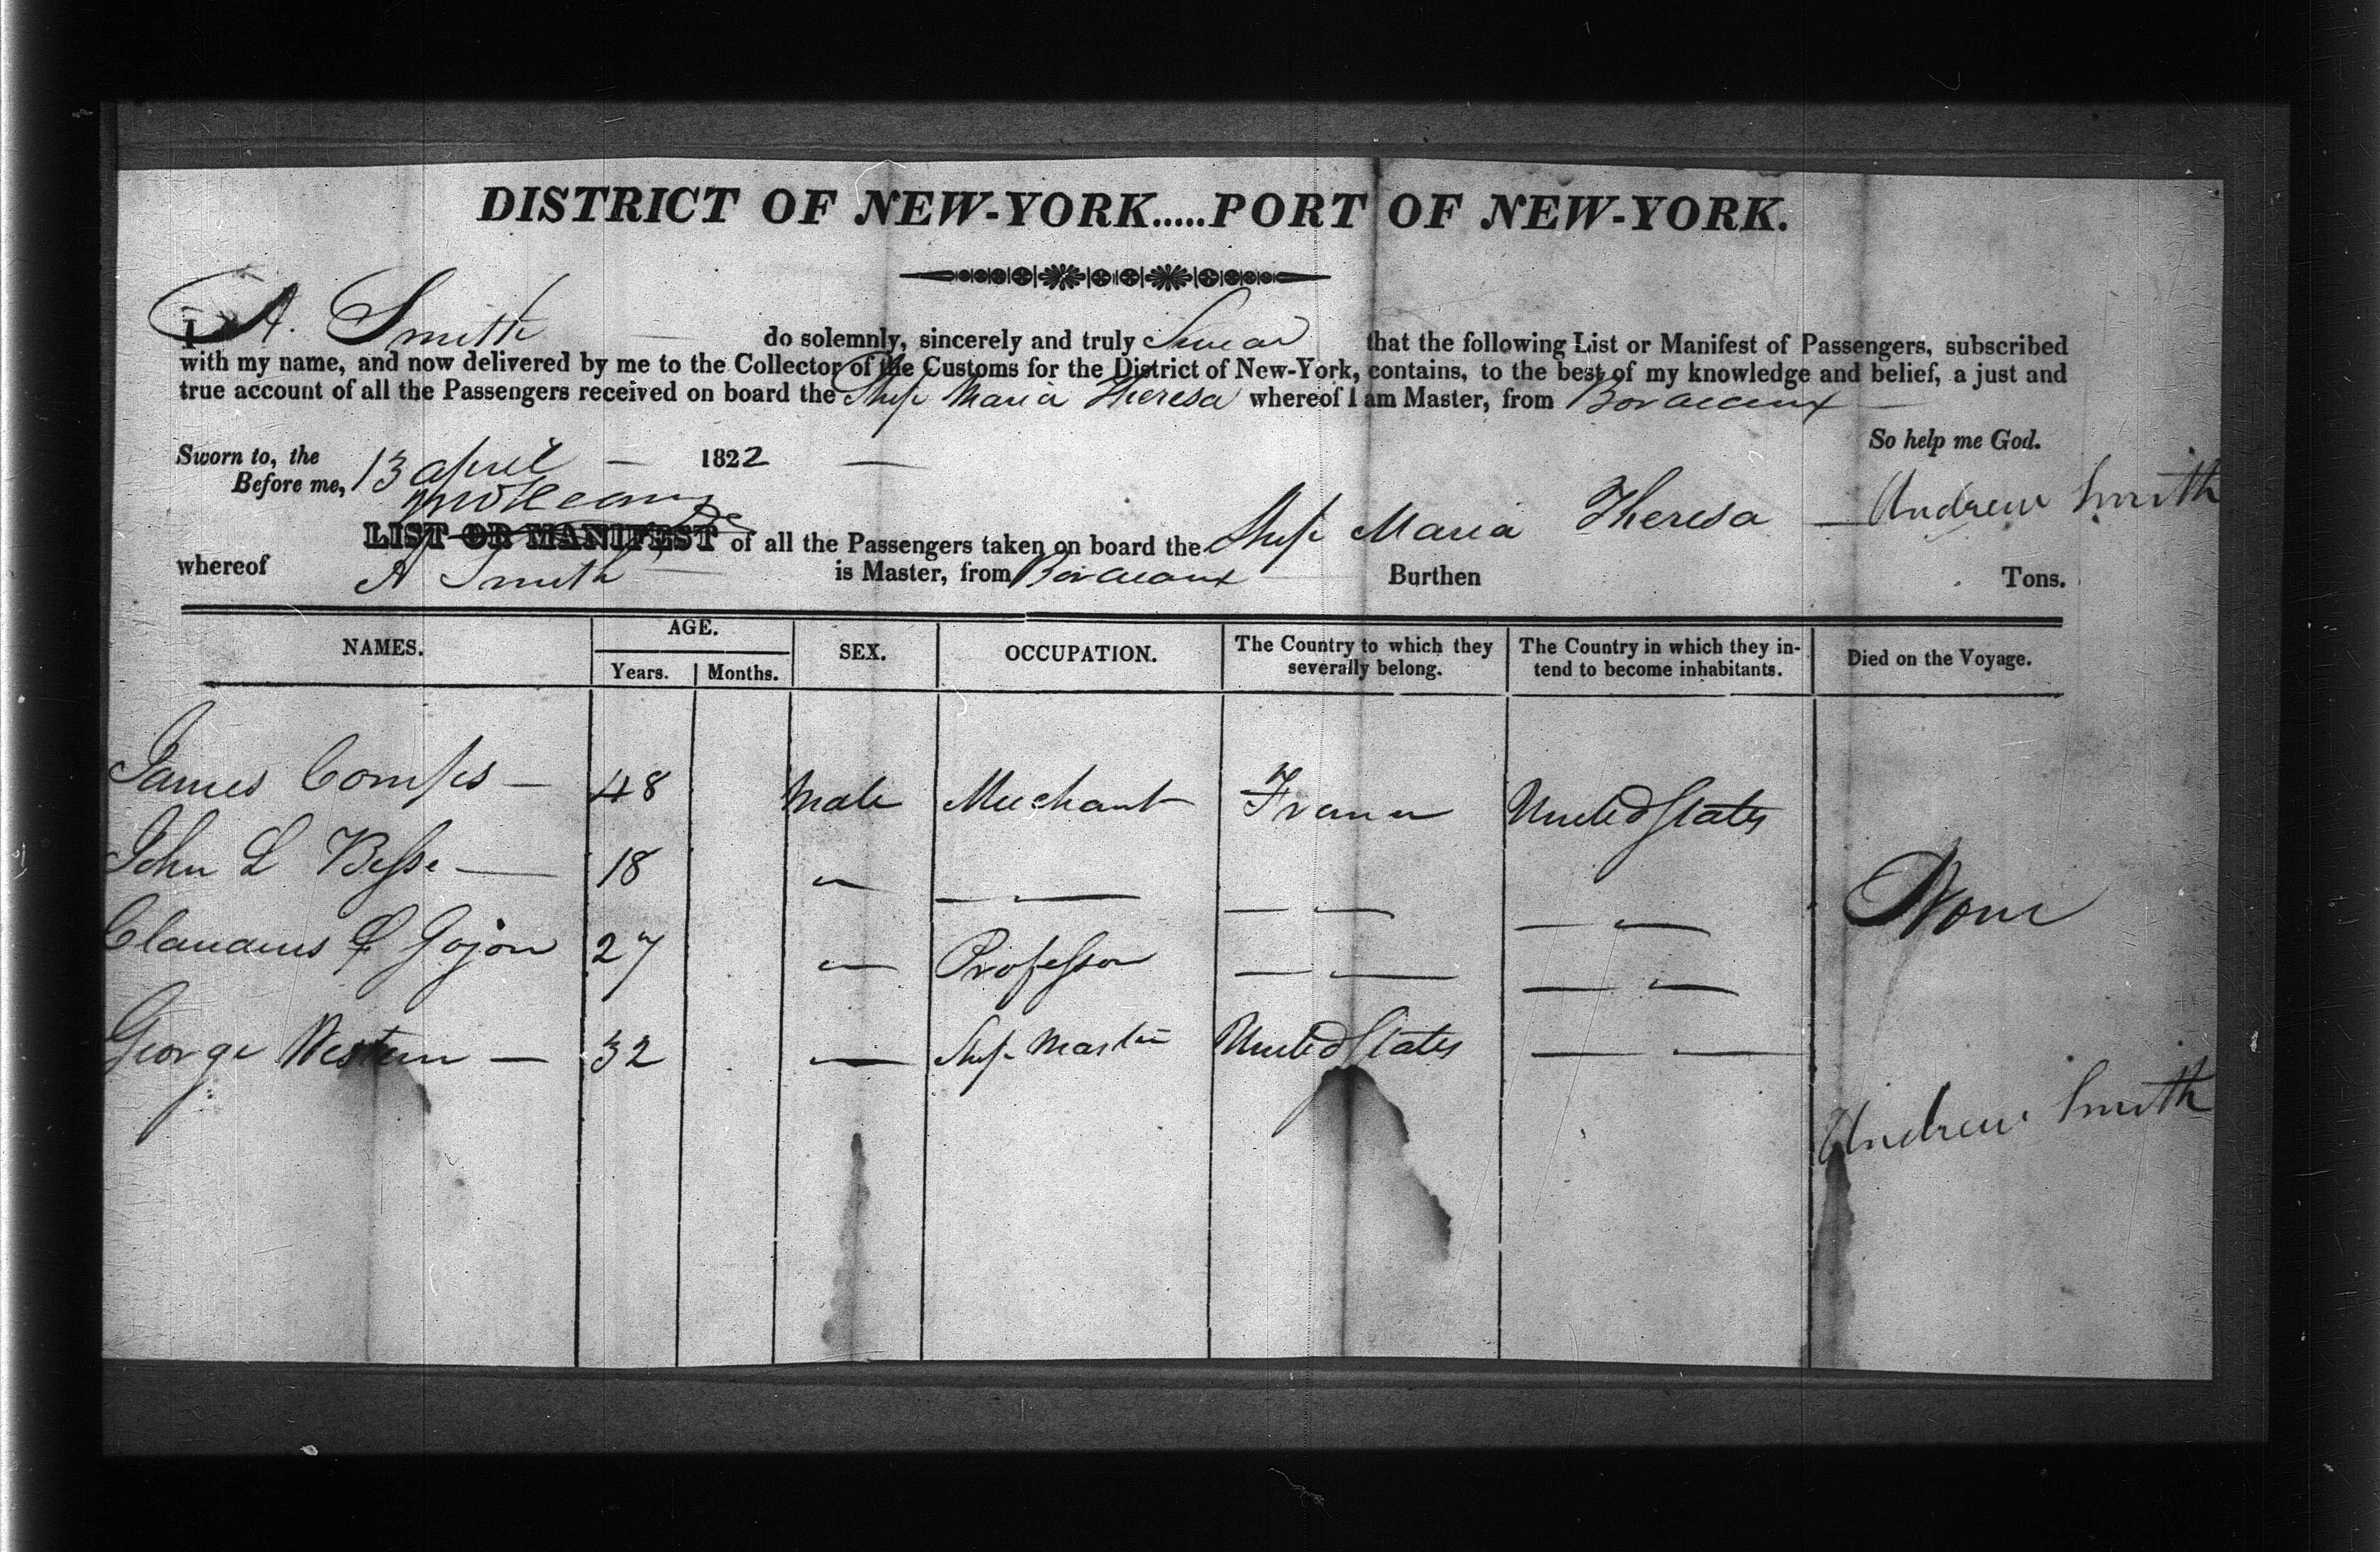 DISTRICT OF NEW-YORK.....PORT OF NEW-YORK.
I A. Smith do solemnly, sincerely and truly Swear that the following List or Manifest of Passengers, subscribed
with my name, and now delivered by me to the Collector of the Customs for the District of New-York, contains, to the best of my knowledge and belief, a just and
true account of all the Passengers received on board the Ship Maria Theresa whereof I am Master, from Bordeaux
So help me God.
Sworn to, the 13 april 1822
Before me,
Andrew Smith
LIST OR MANIFEST of all the Passengers taken on board the Ship Maria Theresa
whereof A Smith is Master, from Bordeaux Burthen Tons.
NAMES. AGE. SEX. OCCUPATION. The Country to which they severally belong. The Country in which they in-tend to become inhabitants. Died on the Voyage.
Years. Months.
James Comps — 48 Male Merchant France United States
John L Besse — 18 — — — — — — —
None
Claudius G Gojon 27 — Professor — — — —
George Western — 32 — Ship Master United States — —
Andrew Smith